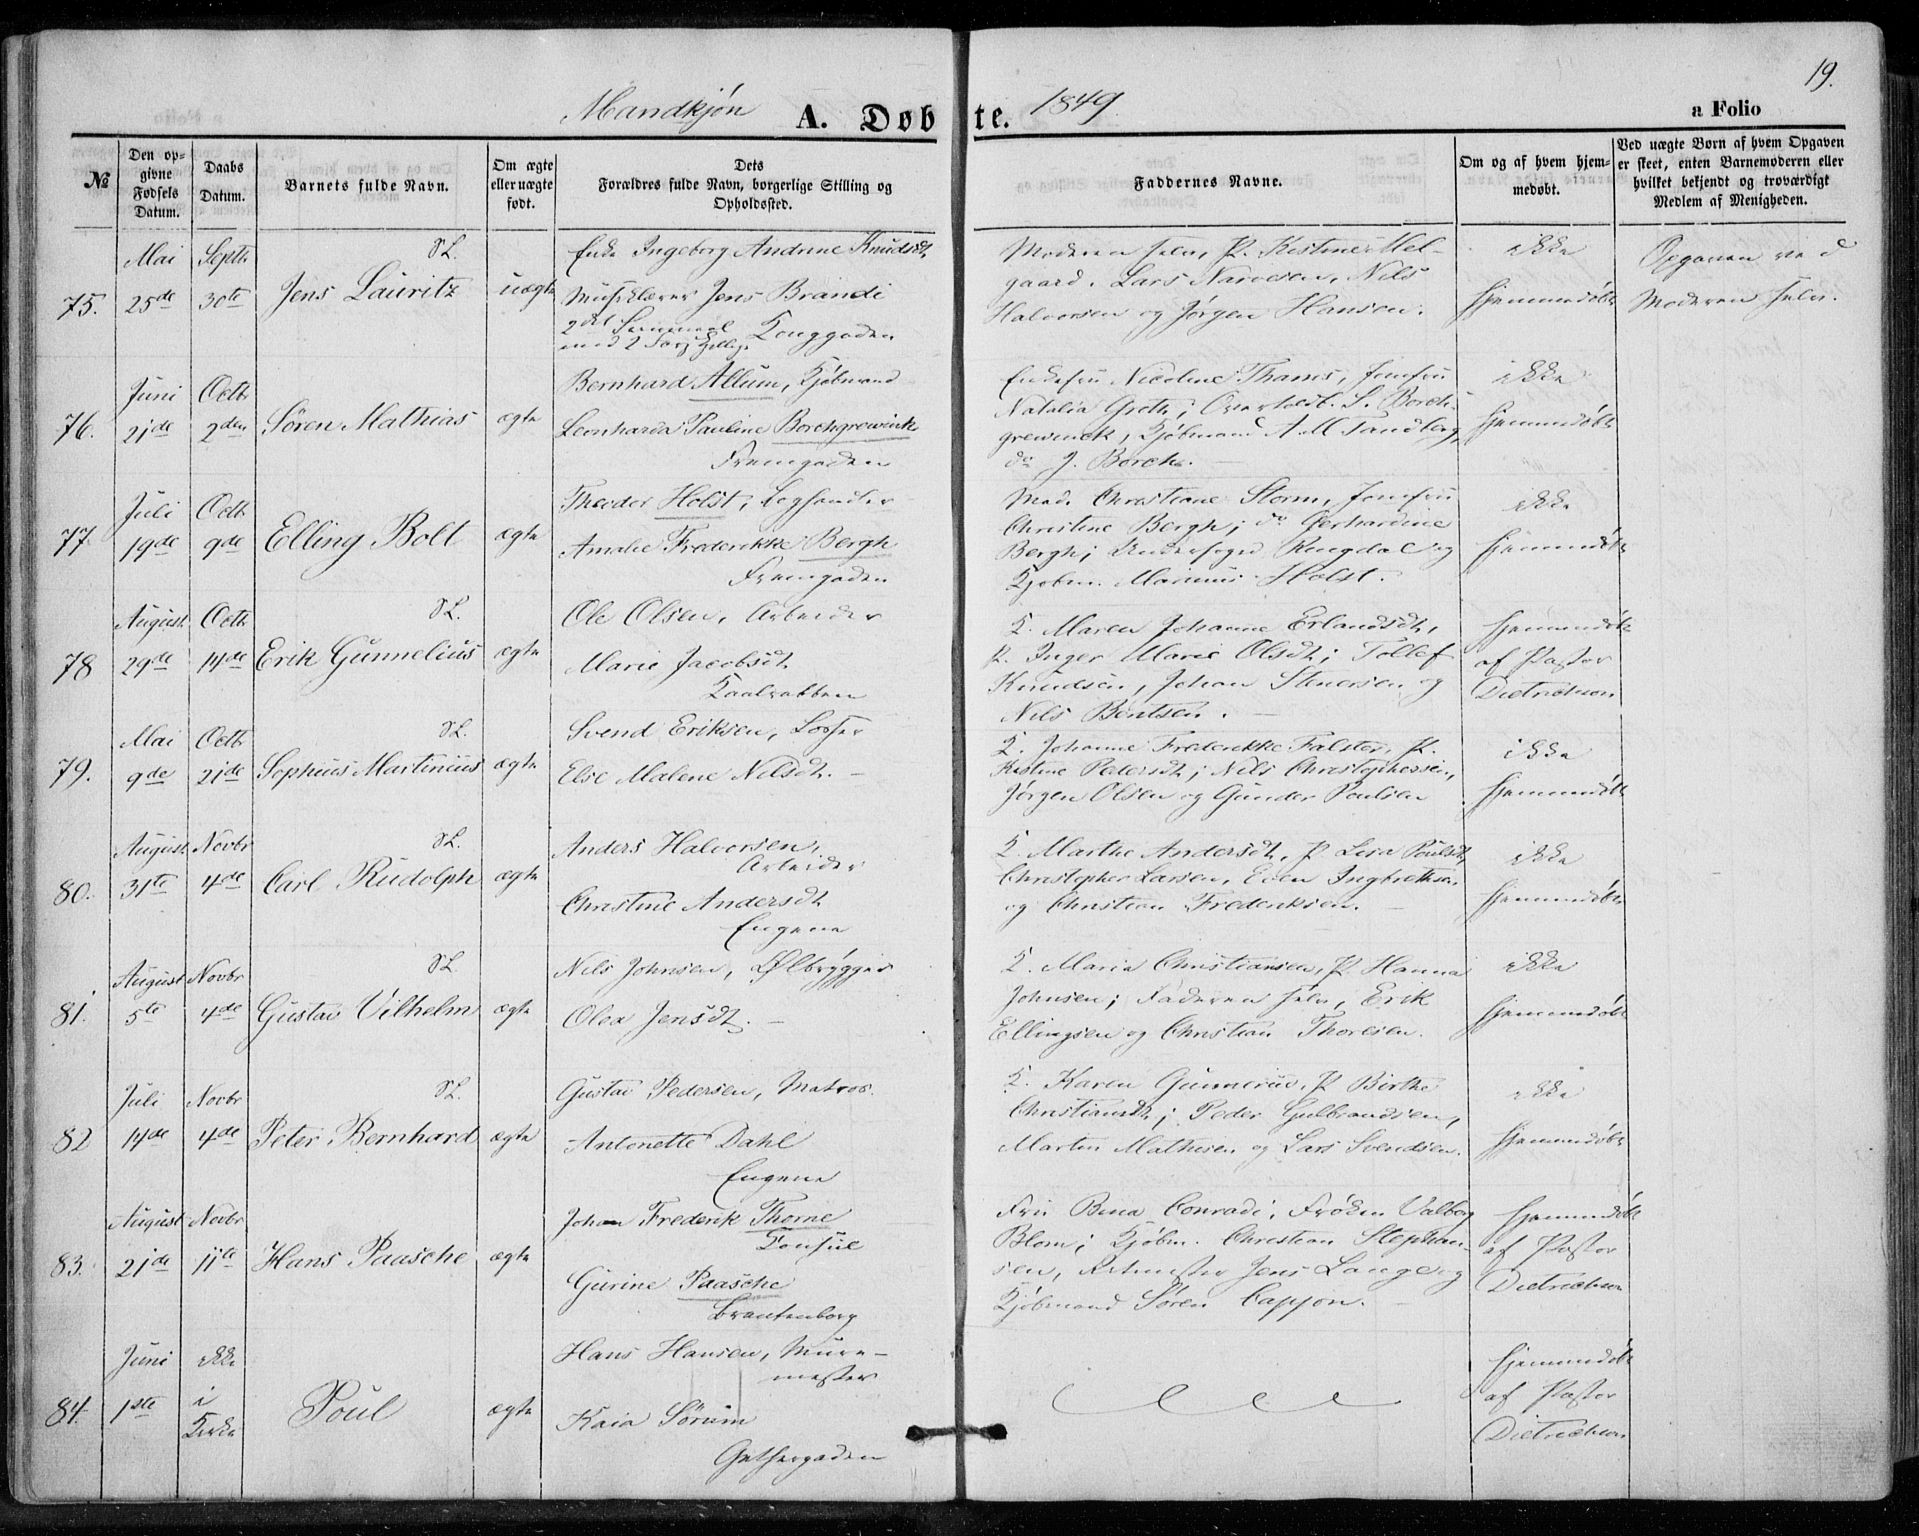 Mandkjøn A. Døbte. 1849. a Folio 19.
№
Den opgivne Fødsels Datum.
Daabs Datum.
Barnets fulde Navn.
Om ægte eller uægte født.
Dets Forældres fulde Navn, borgerlige Stilling og Opholdssted.
Faddernes Navne.
Om og af hvem hjemmedøbt.
Ved uægte Børn af hvem Opgaven er skeet, enten Barnemoderen eller hvilket bekjendt og troværdigt Medlem af Menigheden.
75. Mai 25de
Septb 30te
SL.
Jens Lauritz
uægte
Enke Ingeborg Andrine Knudsdt
Musiklærer Jens Brandi
2det Leiermaal Konggaden
med 2
Moderen selv, P. Kistine Mel-
gaard. Lars Narvesen, Nils
Halvorsen og Jørgen Hansen.
ikke
hjemmedøbt
Opgaven ved
Moderen selv.
76. Juni 21de
Octb 2den
Søren Mathias
ægte
Bernhard Allum, Kjøbmand
Leonharda Pauline Borchgrewink
Fremgaden
Enkefru Nicoline Thams, Jomfru
Natalia Groth; Overtoldb. S. Borch-
grewinck, Kjøbmand A M Tandberg,
do J. Borch. —
ikke
hjemmedøbt
77 Juli 19de
Octb 9de
Elling Bolt
ægte
Theodor Holst, Boghandler
Amalie Frederikke Bergh
Fremgaden
Mad. Christiane Storm, Jomfru
Christine Bergh; do Gerhardine
Bergh; Underfoged Ringdal og
Kjøbm. Marinus Holst.
ikke
hjemmedøbt
78 August 29de
Octb 14de
SL.
Erik Gunnelius
ægte
Ole Olsen, Arbeider
Marie Jacobsdt
Kaalrabben
K. Maren Johanne Erlandsdt,
P. Inger Marie Olsdt; Tollef
Knudsen, Johan Stenersen og
Nils Bentsen. —
hjemmedøbt
af Pastor
Dietrichson
79. Mai 9de
Octb 21de
SL.
Sophus Martinius
ægte
Svend Eriksen, Losser
Else Malene Nilsdt. —
K. Johanne Frederikke Falster, P.
Kistine Pedersdt; Nils Christophersen,
Jørgen Olsen og Gunder Poulsen
ikke
hjemmedøbt
80. August 31te
Novbr 4de
SL.
Carl Rudolph
ægte
Anders Halvorsen,
Arbeider
Christine Andersdt
Engene
K. Marthe Andersdt, P Lisa Poulsdt,
Christopher Larsen, Even Ingbrethsen
og Christian Frederiksen. —
ikke
hjemmedøbt
81. August 5te
Novbr 4de
SL.
Gustav Vilhelm
ægte
Nils Johnsen, Ølbrygger
Olea Jensdt. —
K. Maria Christiansen, P. Hanna
Johnsen; Faderen selv, Erik
Ellingsen og Christian Thoresen.
ikke
hjemmedøbt
82 Juli 14de
Novbr 4de
SL.
Peter Bernhard
ægte
Gustav Pedersen, Matros.
Antonette Dahl
Engene
K. Karen Gunnerud, P Birthe
Christiansdt; Peder Gulbrandsen,
Martin Mathisen og Lars Svendsen.
ikke
hjemmedøbt
83. August 21de
Novbr 11te
Hans Paasche
ægte
Johan Frederik Thorne
Konsul
Gurine Paasche
Brantenborg
Fru Bina Conradi, Frøken Valborg
Blom; Kjøbm. Christian Stephan-
sen, Jens Lange og
Kjøbmand Søren Capjon. —
hjemmedøbt
af Pastor
Dietrichson
84 Juni 1ste
ikke
i
Kirke
Poul
ægte
Hans Hansen, Mure-
mester
Kaia Sørum
Gethergaden
hjemmedøbt
af Pastor
Dietrichson